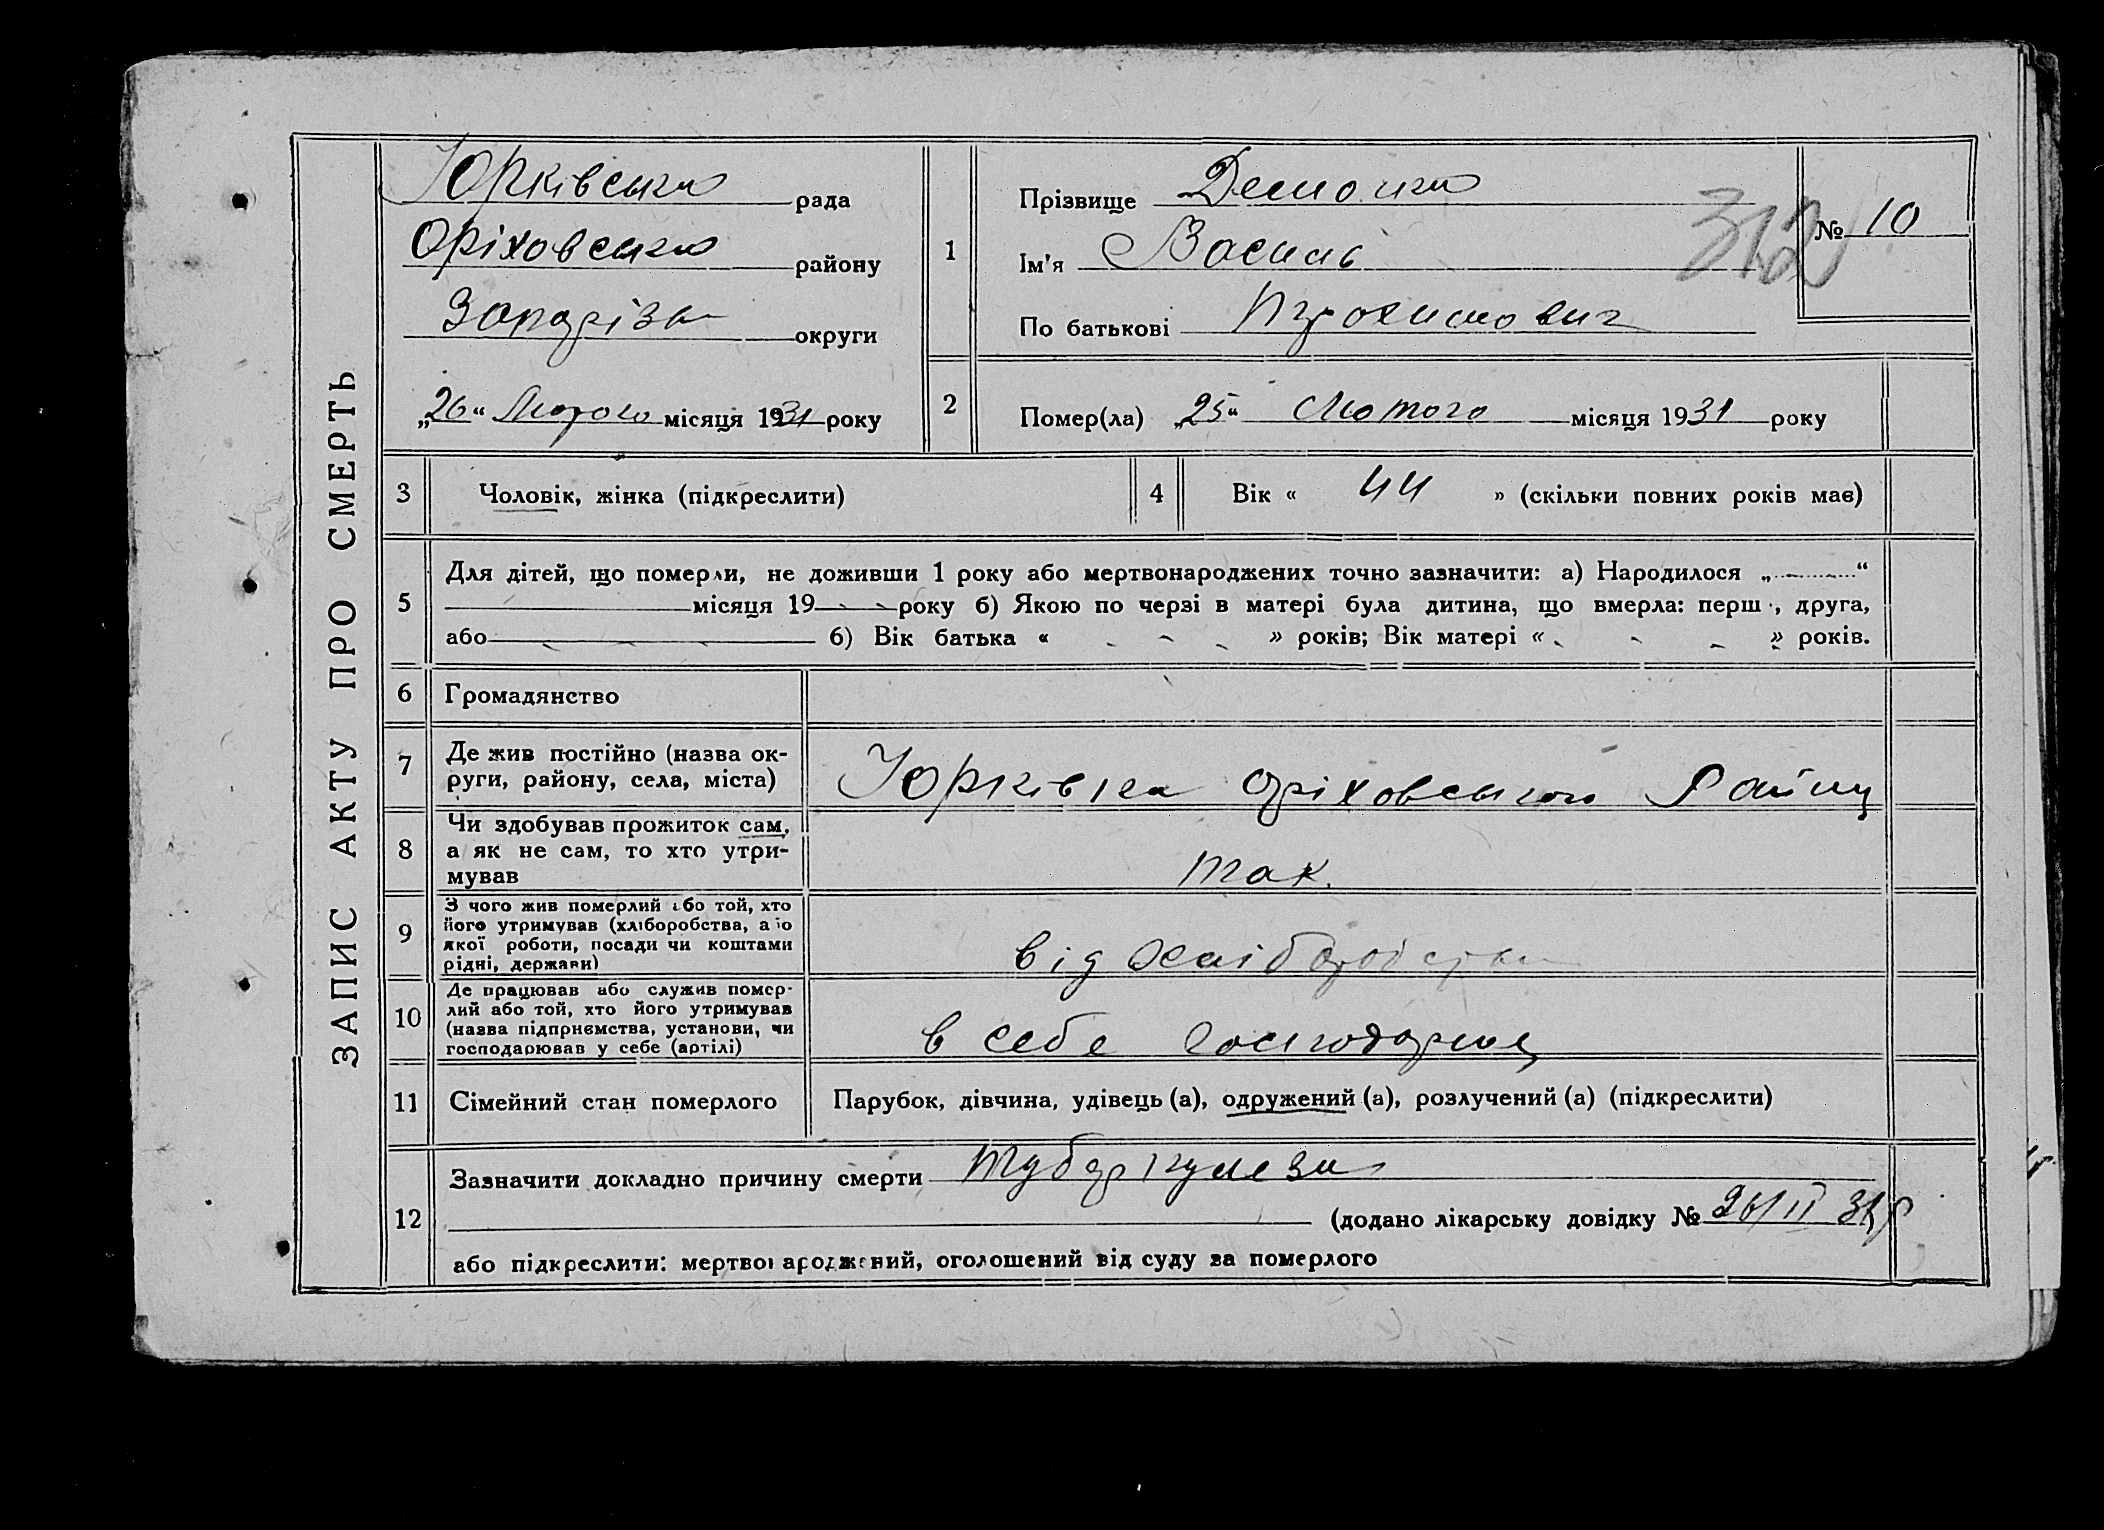 ЗАПИС АКТУ ПРО СМЕРТЬ
Юрківська рада
Оріховська району
округи
„26“ Лютого місяця 1931 року
1
Прізвище
Ім'я Василь
По батькові
312
№ 10
2
Помер(ла) „25“ Лютого місяця 1931 року
3 Чоловік, жінка (підкреслити)
4 Вік « 44 » (скільки повних років має)
5
Для дітей, що померли, не доживши 1 року або мертвонароджених точно зазначити: а) Народилося „ “
місяця 19 року б) Якою по черзі в матері була дитина, що вмерла: перш , друга,
або 6) Вік батька « » років; Вік матері « » років.
6 Громадянство
7
Де жив постійно (назва ок-
руги, району, села, міста)
Юрківка Оріховського Району
8
Чи здобував прожиток сам,
а як не сам, то хто утри-
мував
так.
9
З чого жив померлий або той, хто
його утримував (хліборобства, або
якої роботи, посади чи коштами
рідні, держави)
від Хліборобства
10
Де працював або служив помер-
лий або той, хто його утримував
(назва підприємства, установи, чи
господарював у себе (артілі)
в себе Господарив
11 Сімейний стан померлого
Парубок, дівчина, удівець (а), одружений (а), розлучений (а) (підкреслити)
12
Зазначити докладно причину смерти Туберкулеза
(додано лікарську довідку № 26/II 31 р
або підкреслити: мертвонароджений, оголошений від суду за померлого